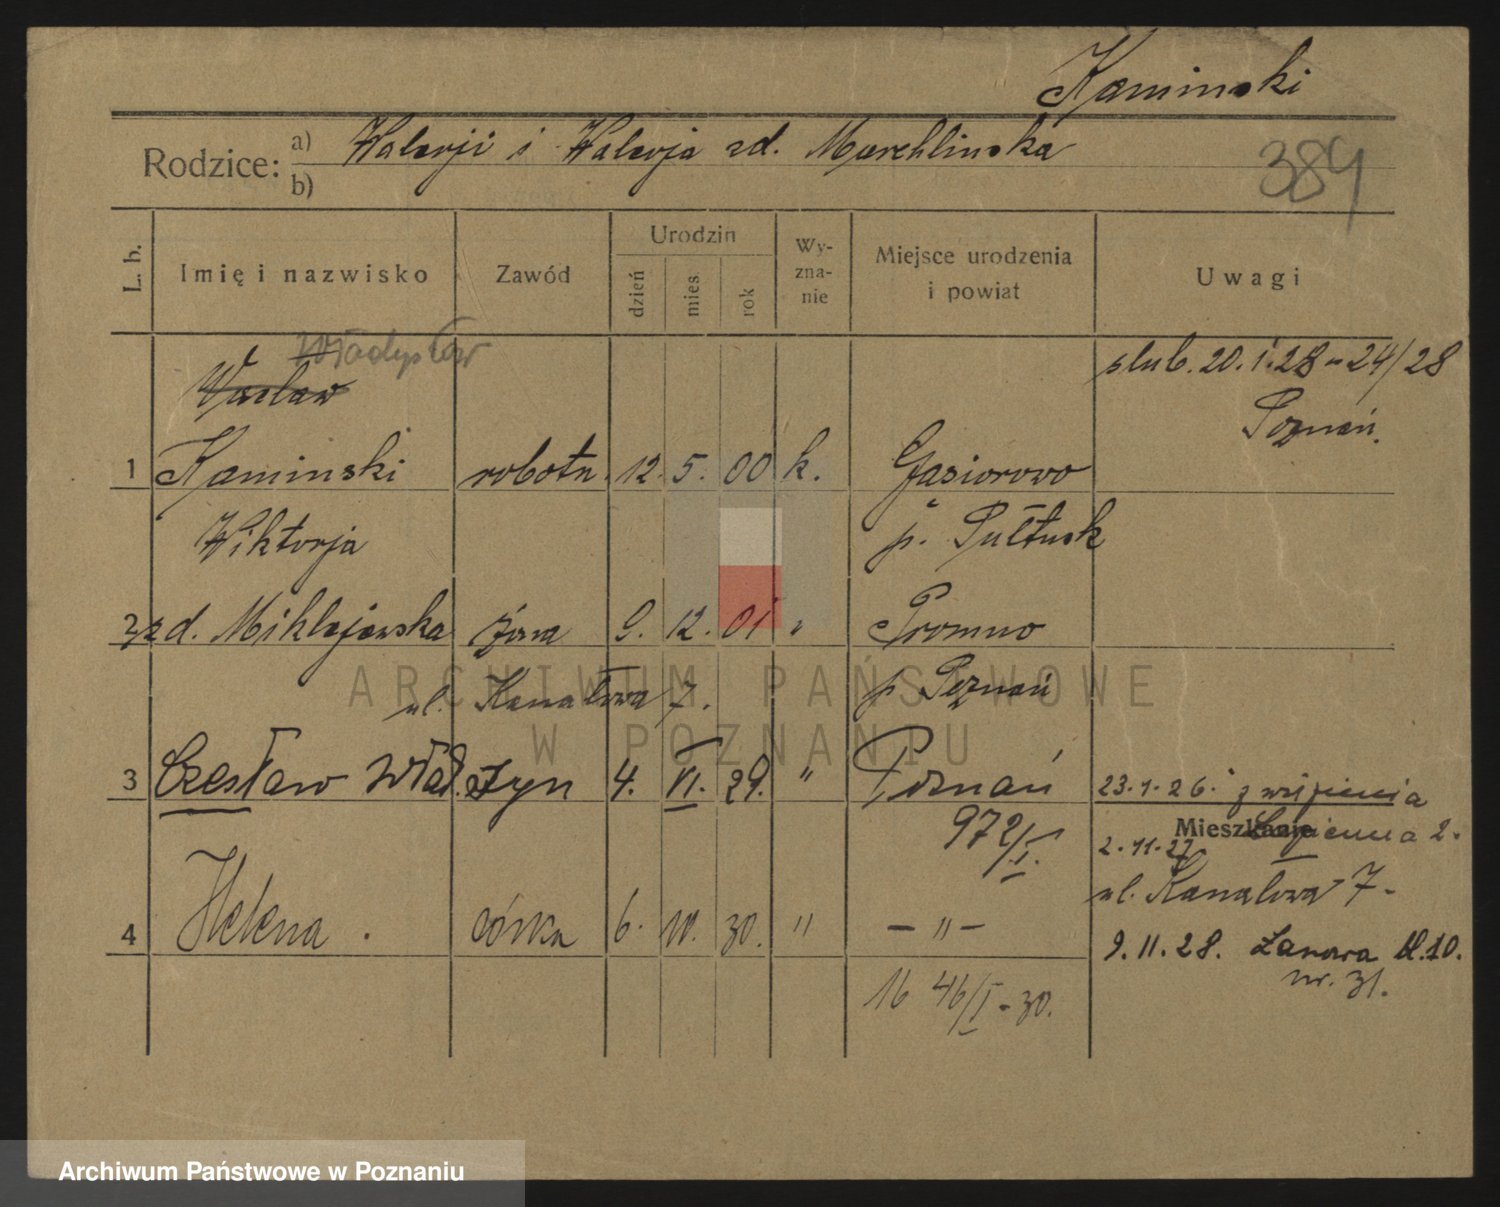 Kaminski
Rodzice: a) Walerji i Walerja zd. Marchlinska
b)
389
L. b. Imię i nazwisko Zawód Urodzin dzień mies. rok Wy-zna-nie Miejsce urodzenia i powiat Uwagi
Władysław
Wacław
slub. 20.1.28 - 24/28
Poznań.
1 Kaminski robotn. 12. 5. 00 k. Gasiorowo
Wiktorja p. Pułtusk
2 zd. Miklejewska żona 9. 12. 01 " Promno
ul. Kanałowa 7. p. Poznań
ARCHIWUM PAŃSTWOWE
W POZNANIU
3 Czesław Wład. syn 4. VI. 29. " Poznań 23.1.26.
972/I.
Mieszkanie 2.
2.11.27
ul. Kanałowa 7-
4 Helena córka 6. 30. " - " -
9.11.28. Łanowa bl.10.
nr. 31.
1646/I-30.
Archiwum Państwowe w Poznaniu